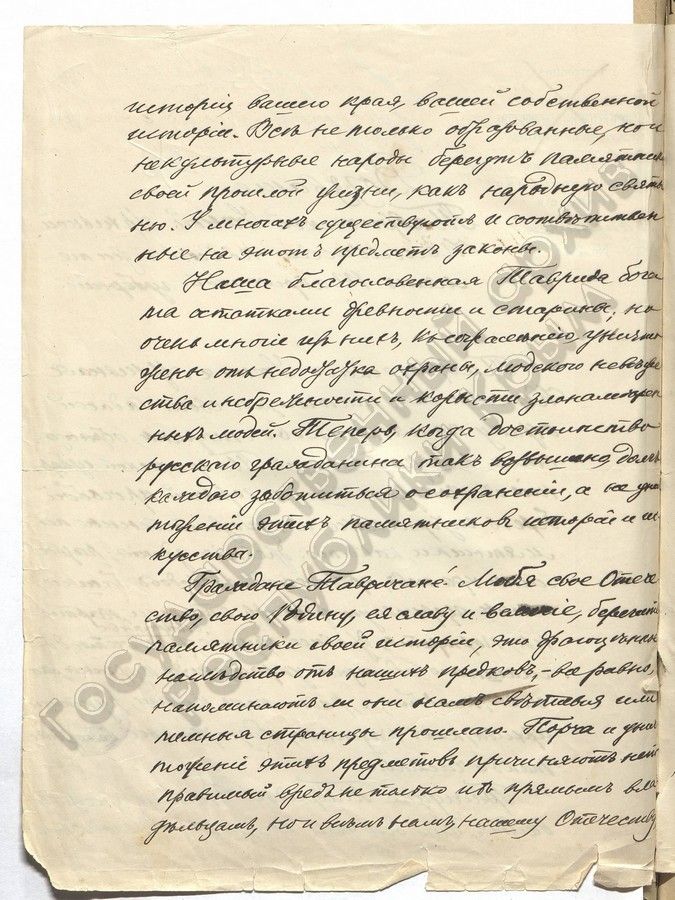 исторіи вашего края, вашей собственной
исторіи. Всѣ не только образованные, но и
некультурные народы берегутъ памятники
своей прошлой жизни, какъ народную святы
ню. У многихъ существуютъ и соотвѣтствен
ные на этотъ предметъ законы.
Наша благословенная Таврида бога
та остатками древности и старины, но
очень многіе изъ нихъ, къ сожалѣнію, уничто
жены отъ недостатка охраны, людского невѣже
ства и небрежности и корысти злонамѣрен
ныхъ людей. Теперь, когда достоинство
русскаго гражданина такъ возвышено долгъ
каждаго заботиться о сохраненіи, а не уни
тоженіи этихъ памятниковъ исторіи и ис
кусства.
Граждане Тавричане! Любя свое Отече
ство, свою Родину, ея славу и величіе, берегите
памятники своей исторіи, это драгоцѣнное
наслѣдство отъ нашихъ предковъ, - все равно,
напоминаютъ ли они намъ свѣтлыя или
темныя страницы прошлаго. Порча и уни
тоженіе этихъ предметовъ причиняютъ непо
правимый вредъ не только ихъ прямымъ вла
дѣльцамъ, но и всѣмъ намъ, нашему Отечеству
Государственный архив
Республики Крым